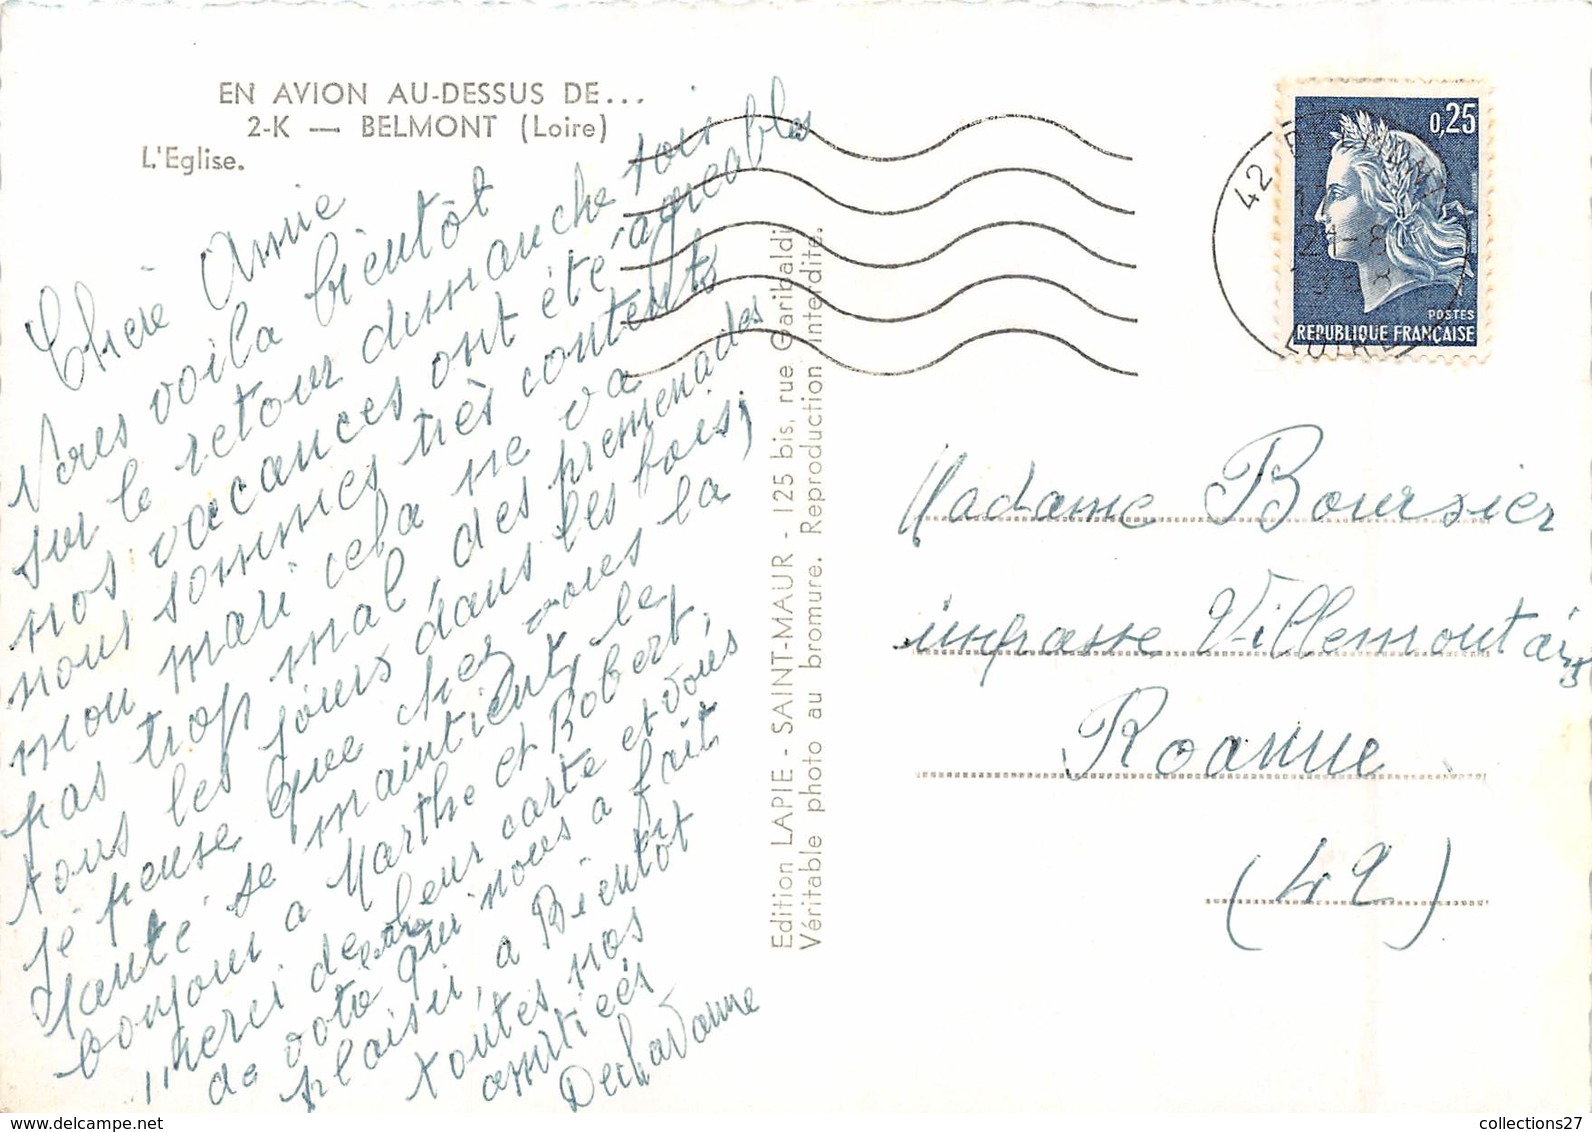 EN AVION AU-DESSUS DE...
2-K — BELMONT (Loire)
L'Eglise.
Chère Amie
Nous voila bientôt
sur le retour dimanche soir
nos vacances ont été agréables
nous sommes très contents
mon mari cela ne va
pas trop mal, des promenades
tous les jours dans les bois,
je pense que chez vous la
santé se maintient, le
bonjour a Marthe et Robert,
merci de leur carte et vous
de votre qui nous a fait
plaisir, a Bientôt
toutes nos
amitiées
Dechavanne
Edition LAPIE - SAINT-MAUR - 125 bis, rue Garibaldi
Véritable photo au bromure. Reproduction interdite.
0,25
POSTES
REPUBLIQUE FRANÇAISE
42 BELMONT
LOIRE
Madame Boursier
impasse Villemontais
Roanne
(42)
collections27